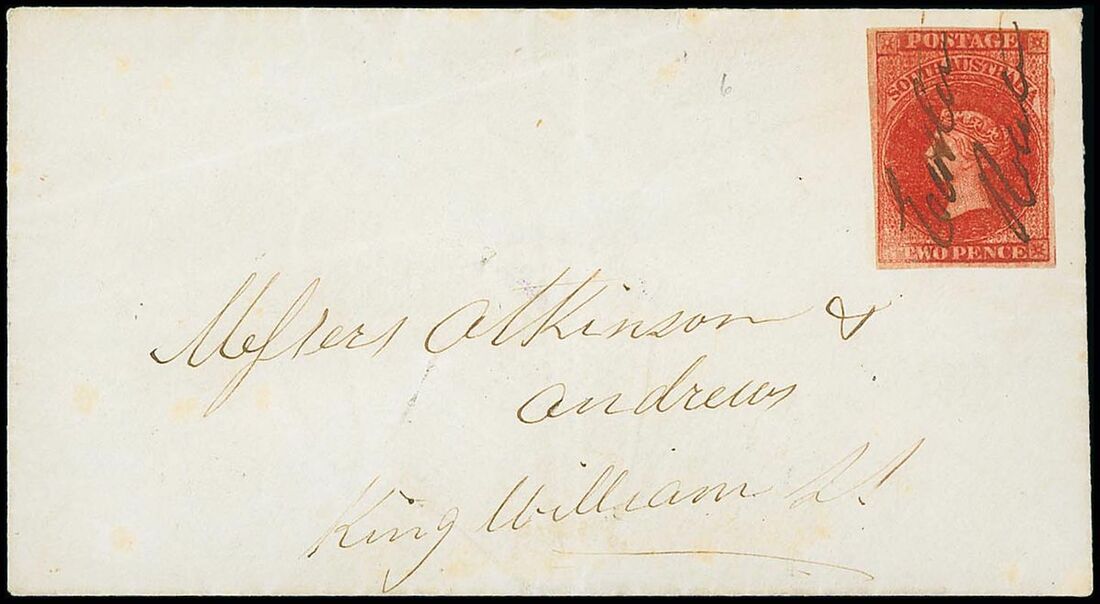 6
POSTAGE
SOUTH AUSTRALIA
TWO PENCE
Meſsers Atkinson &
Andrews
King William St